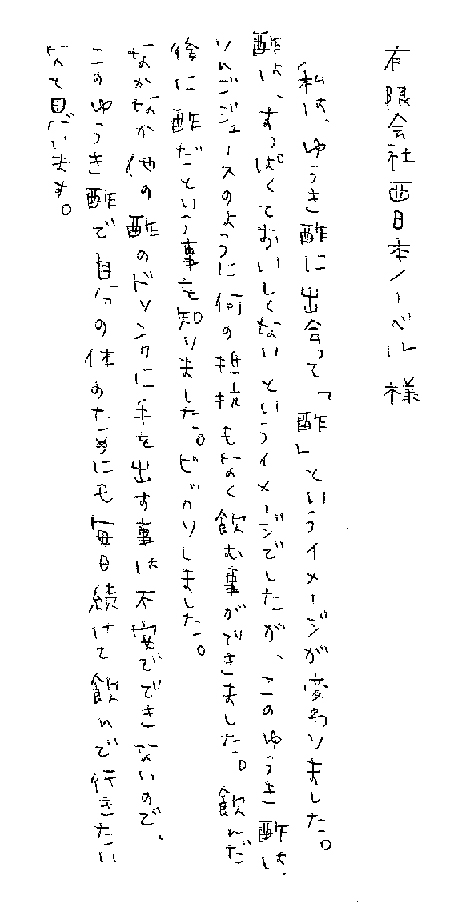 有限会社西日本ノーベル様
私は、ゆうき酢に出会って「酢」というイメージが変わりました。
酢は、すっぱくておいしくないというイメージでしたが、このゆうき酢は、
りんごジュースのように何の抵抗もなく飲む事ができました。飲んだ
後に酢だという事を知りました。ビックリしました。
なかなか他の酢のドリンクに手を出す事は不安でできないので、
このゆうき酢で自分の体のためにも毎日続けて飲んで行きたい
なと思います。